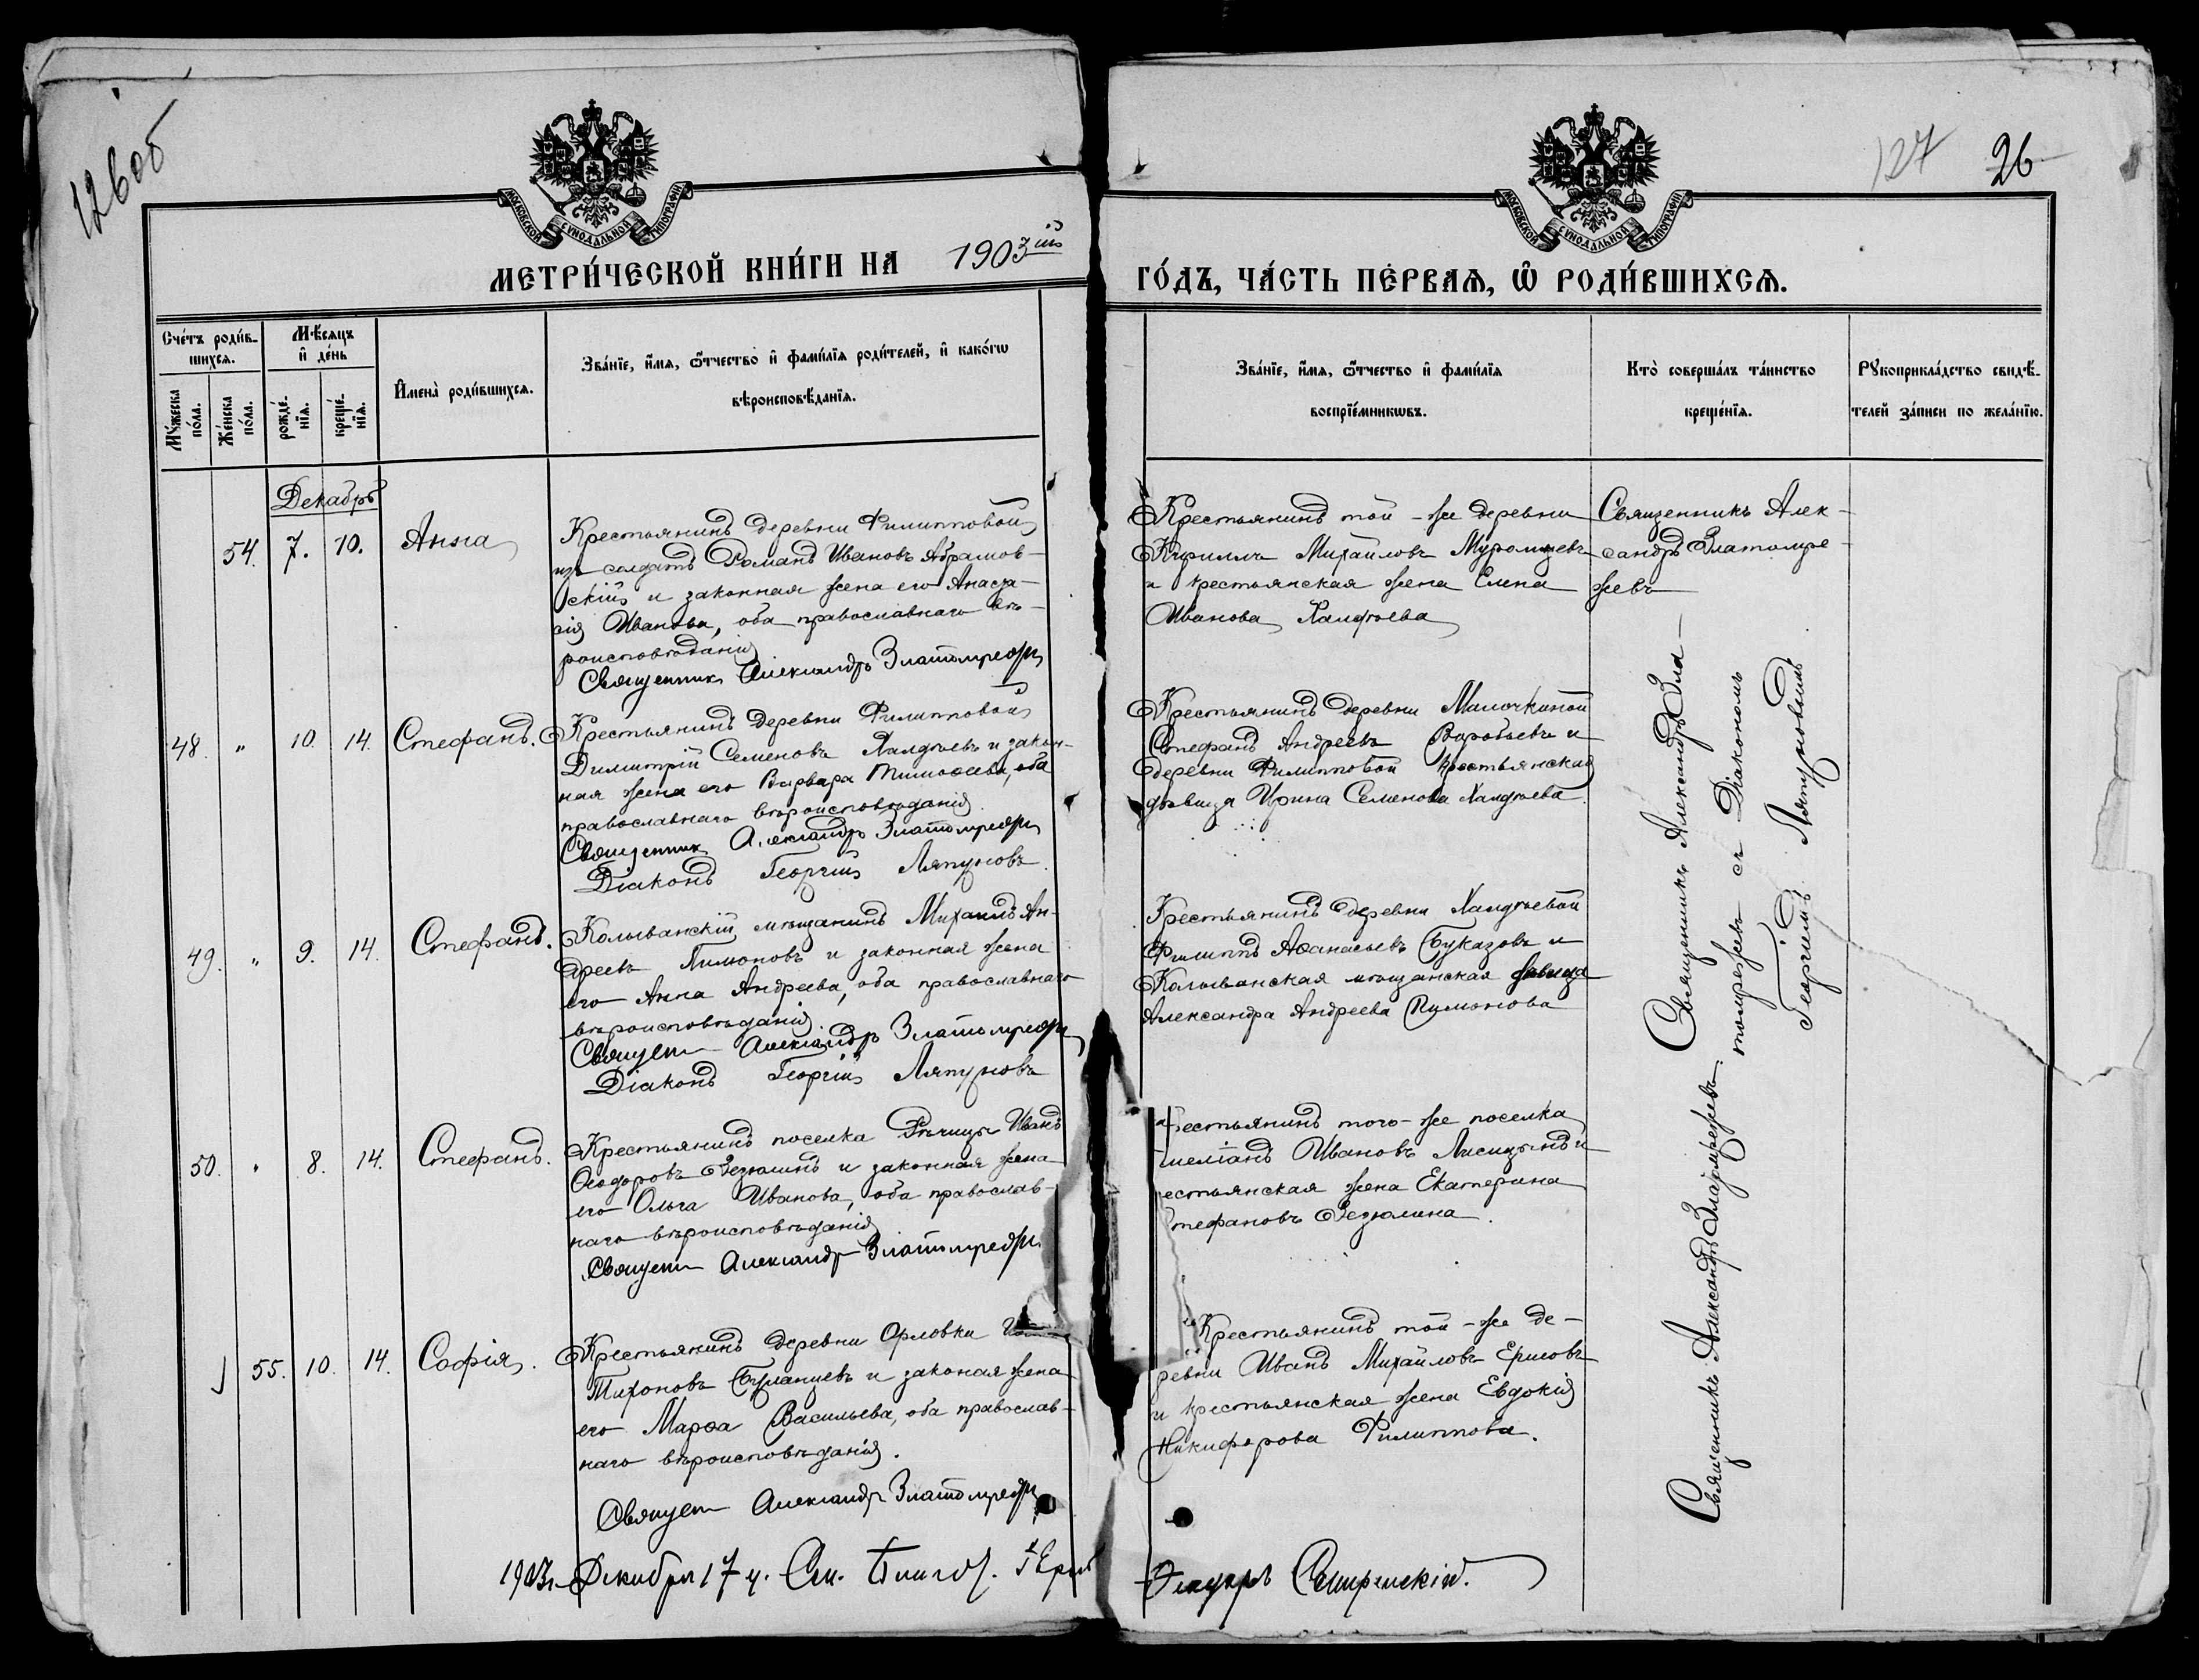 126 об
127 26
МОСКОВСКОЙ СѴНОДАЛЬНОЙ ТИПОГРАФІИ
МОСКОВСКОЙ СѴНОДАЛЬНОЙ ТИПОГРАФІИ
МЕТРИ́ЧЕСКОЙ КНИ́ГИ НА 1903 ій
ГО́ДЪ, ЧА́СТЬ ПЕ́РВАѦ, Ѡ҆ РОДИ́ВШИХСѦ.
Сче́тъ роди́в-
шихсѧ.
Мꙋ́жеска
по́ла.
Же́нска
по́ла.
Мѣ́сѧцъ
и҆ де́нь
рожде́-
нїѧ.
креще́-
нїѧ.
И҆мена̀ роди́вшихсѧ.
Зва́нїе, и҆́мѧ, ѻ҆́тчество и҆ фами́лїѧ роди́телей, и҆ како́гѡ
вѣроисповѣ́данїѧ.
Зва́нїе, и҆́мѧ, ѻ҆́тчество и҆ фами́лїѧ
воспрїе́мникѡвъ.
Кто̀ соверша́лъ та́инство
креще́нїѧ.
Рꙋкоприкла́дство свидѣ́-
телей за́писи по жела́нїю.
Декабрь
54. 7. 10. Анна
Крестьянинъ деревни Филипповой
изъ солдатъ Романъ Ивановъ Абрамов-
скій и законная жена его Анаста-
сія Иванова, оба православнаго вѣ-
роисповѣданія
Священникъ Александръ Златомрежевъ
Крестьянинъ той-же деревни
Кириллъ Михайловъ Муромцевъ
и крестьянская жена Елена
Иванова Халдѣева
Священникъ Алек-
сандръ Златомре-
жевъ
48. " 10. 14. Стефанъ.
Крестьянинъ деревни Филипповой
Димитрій Семеновъ Халдѣевъ и закон-
ная жена его Варвара Тимоѳеева, оба
православнаго вѣроисповѣданія.
Священникъ Александръ Златомрежевъ
Діаконъ Георгій Ляпуновъ.
Крестьянинъ деревни Малочкиной
Стефанъ Андреевъ Воробьевъ и
деревни Филипповой крестьянская
дѣвица Ирина Семенова Халдѣева.
Священникъ Александръ Зла-
томрежевъ съ Діакономъ
Георгіемъ Ляпуновымъ
49. " 9. 14. Стефанъ.
Колыванскій мѣщанинъ Михаилъ Ан-
дреевъ Пимоновъ и законная жена
его Анна Андреева, оба православнаго
вѣроисповѣданія.
Священ Александръ Златомрежевъ
Діаконъ Георгій Ляпуновъ
Крестьянинъ деревни Халдѣевой
Филиппъ Аѳанасьевъ Буказовъ и
Колыванская мѣщанская дѣвица
Александра Андреева Пимонова
50. " 8. 14. Стефанъ.
Крестьянинъ поселка Рѣчицы Иванъ
Ѳеодоровъ Резюлинъ и законная жена
его Ольга Иванова, оба православ-
наго вѣроисповѣданія
Священ Александръ Златомрежевъ
рестьянинъ того-же поселка
меліанъ Ивановъ Лисицынъ и
естьянская жена Екатерина
Стефановъ Резюлина.
Священникъ Александръ Златомрежевъ.
55. 10. 14. Софія.
Крестьянинъ деревни Орловки
Тихоновъ Буланцевъ и законая жена
его Марѳа Васильева, оба православ-
наго вѣроисповѣданія.
Священ Александръ Златомрежевъ
Крестьянинъ той-же де-
ревни Иванъ Михайловъ Ерисовъ
и крестьянская жена Евдокія
Никифорова Филиппова.
1903 г. Декабря 17 ч. См.